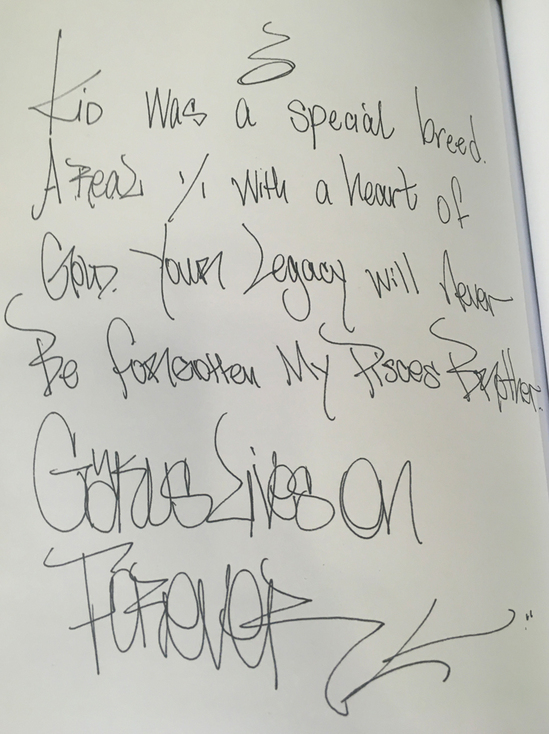 Kid was a special breed.
A Real % with a heart of
Gold. Your Legacy will Never
Be Forgotten My Pisces Brother.
Lives On
Forever